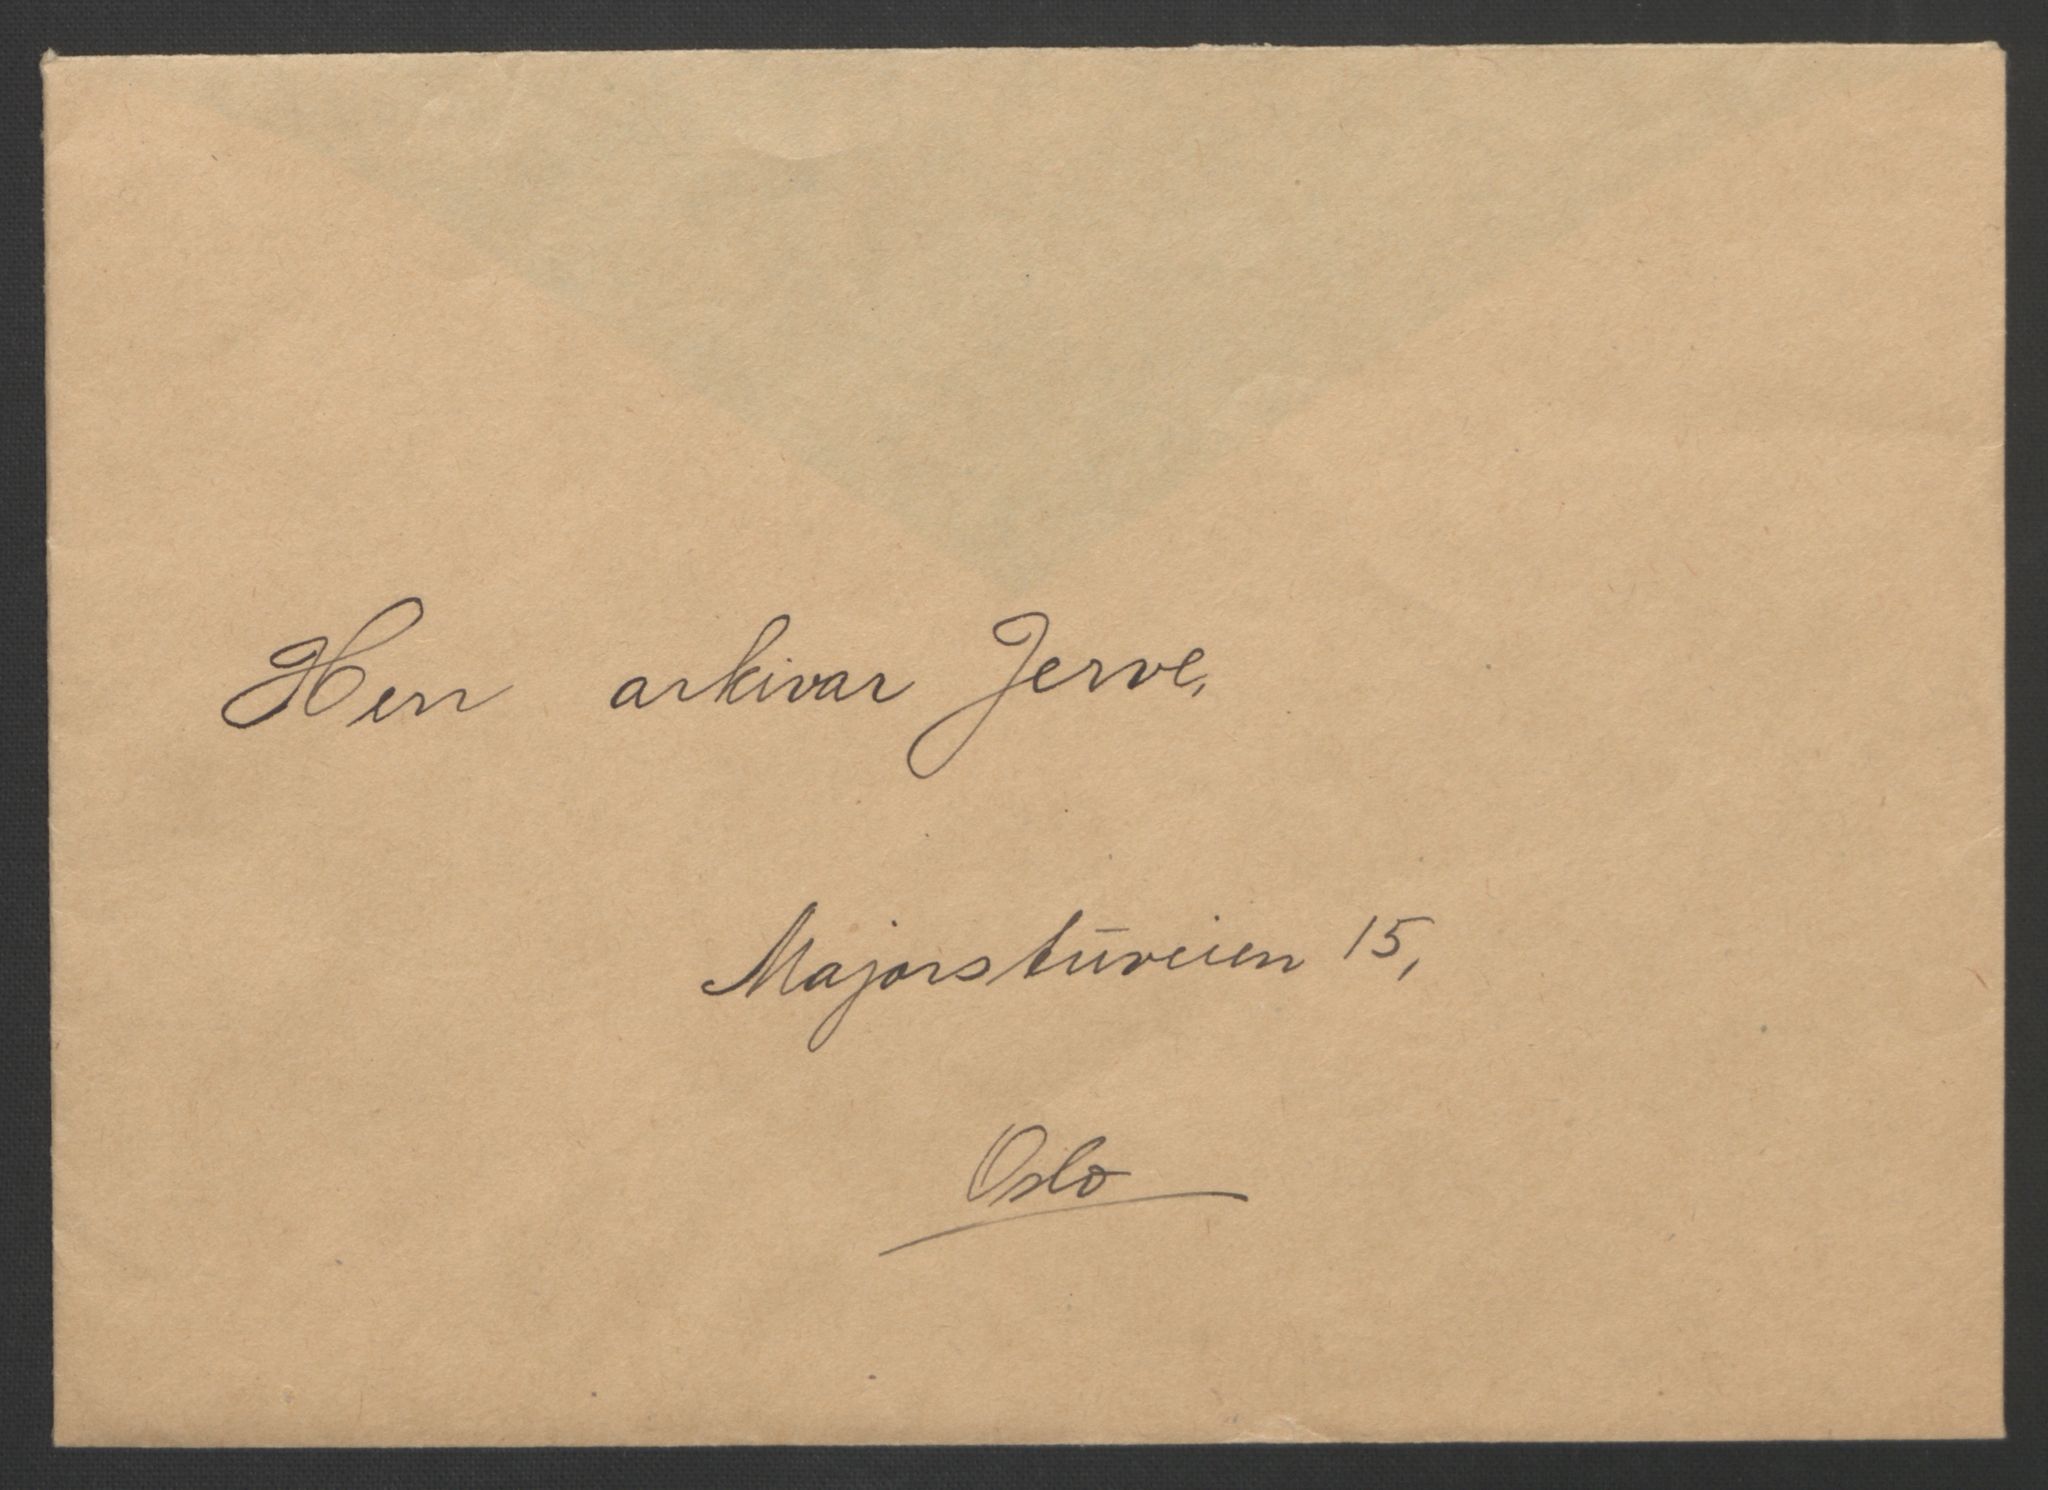 Herr arkivar Jerve,
Majorstuveien 15,
Oslo